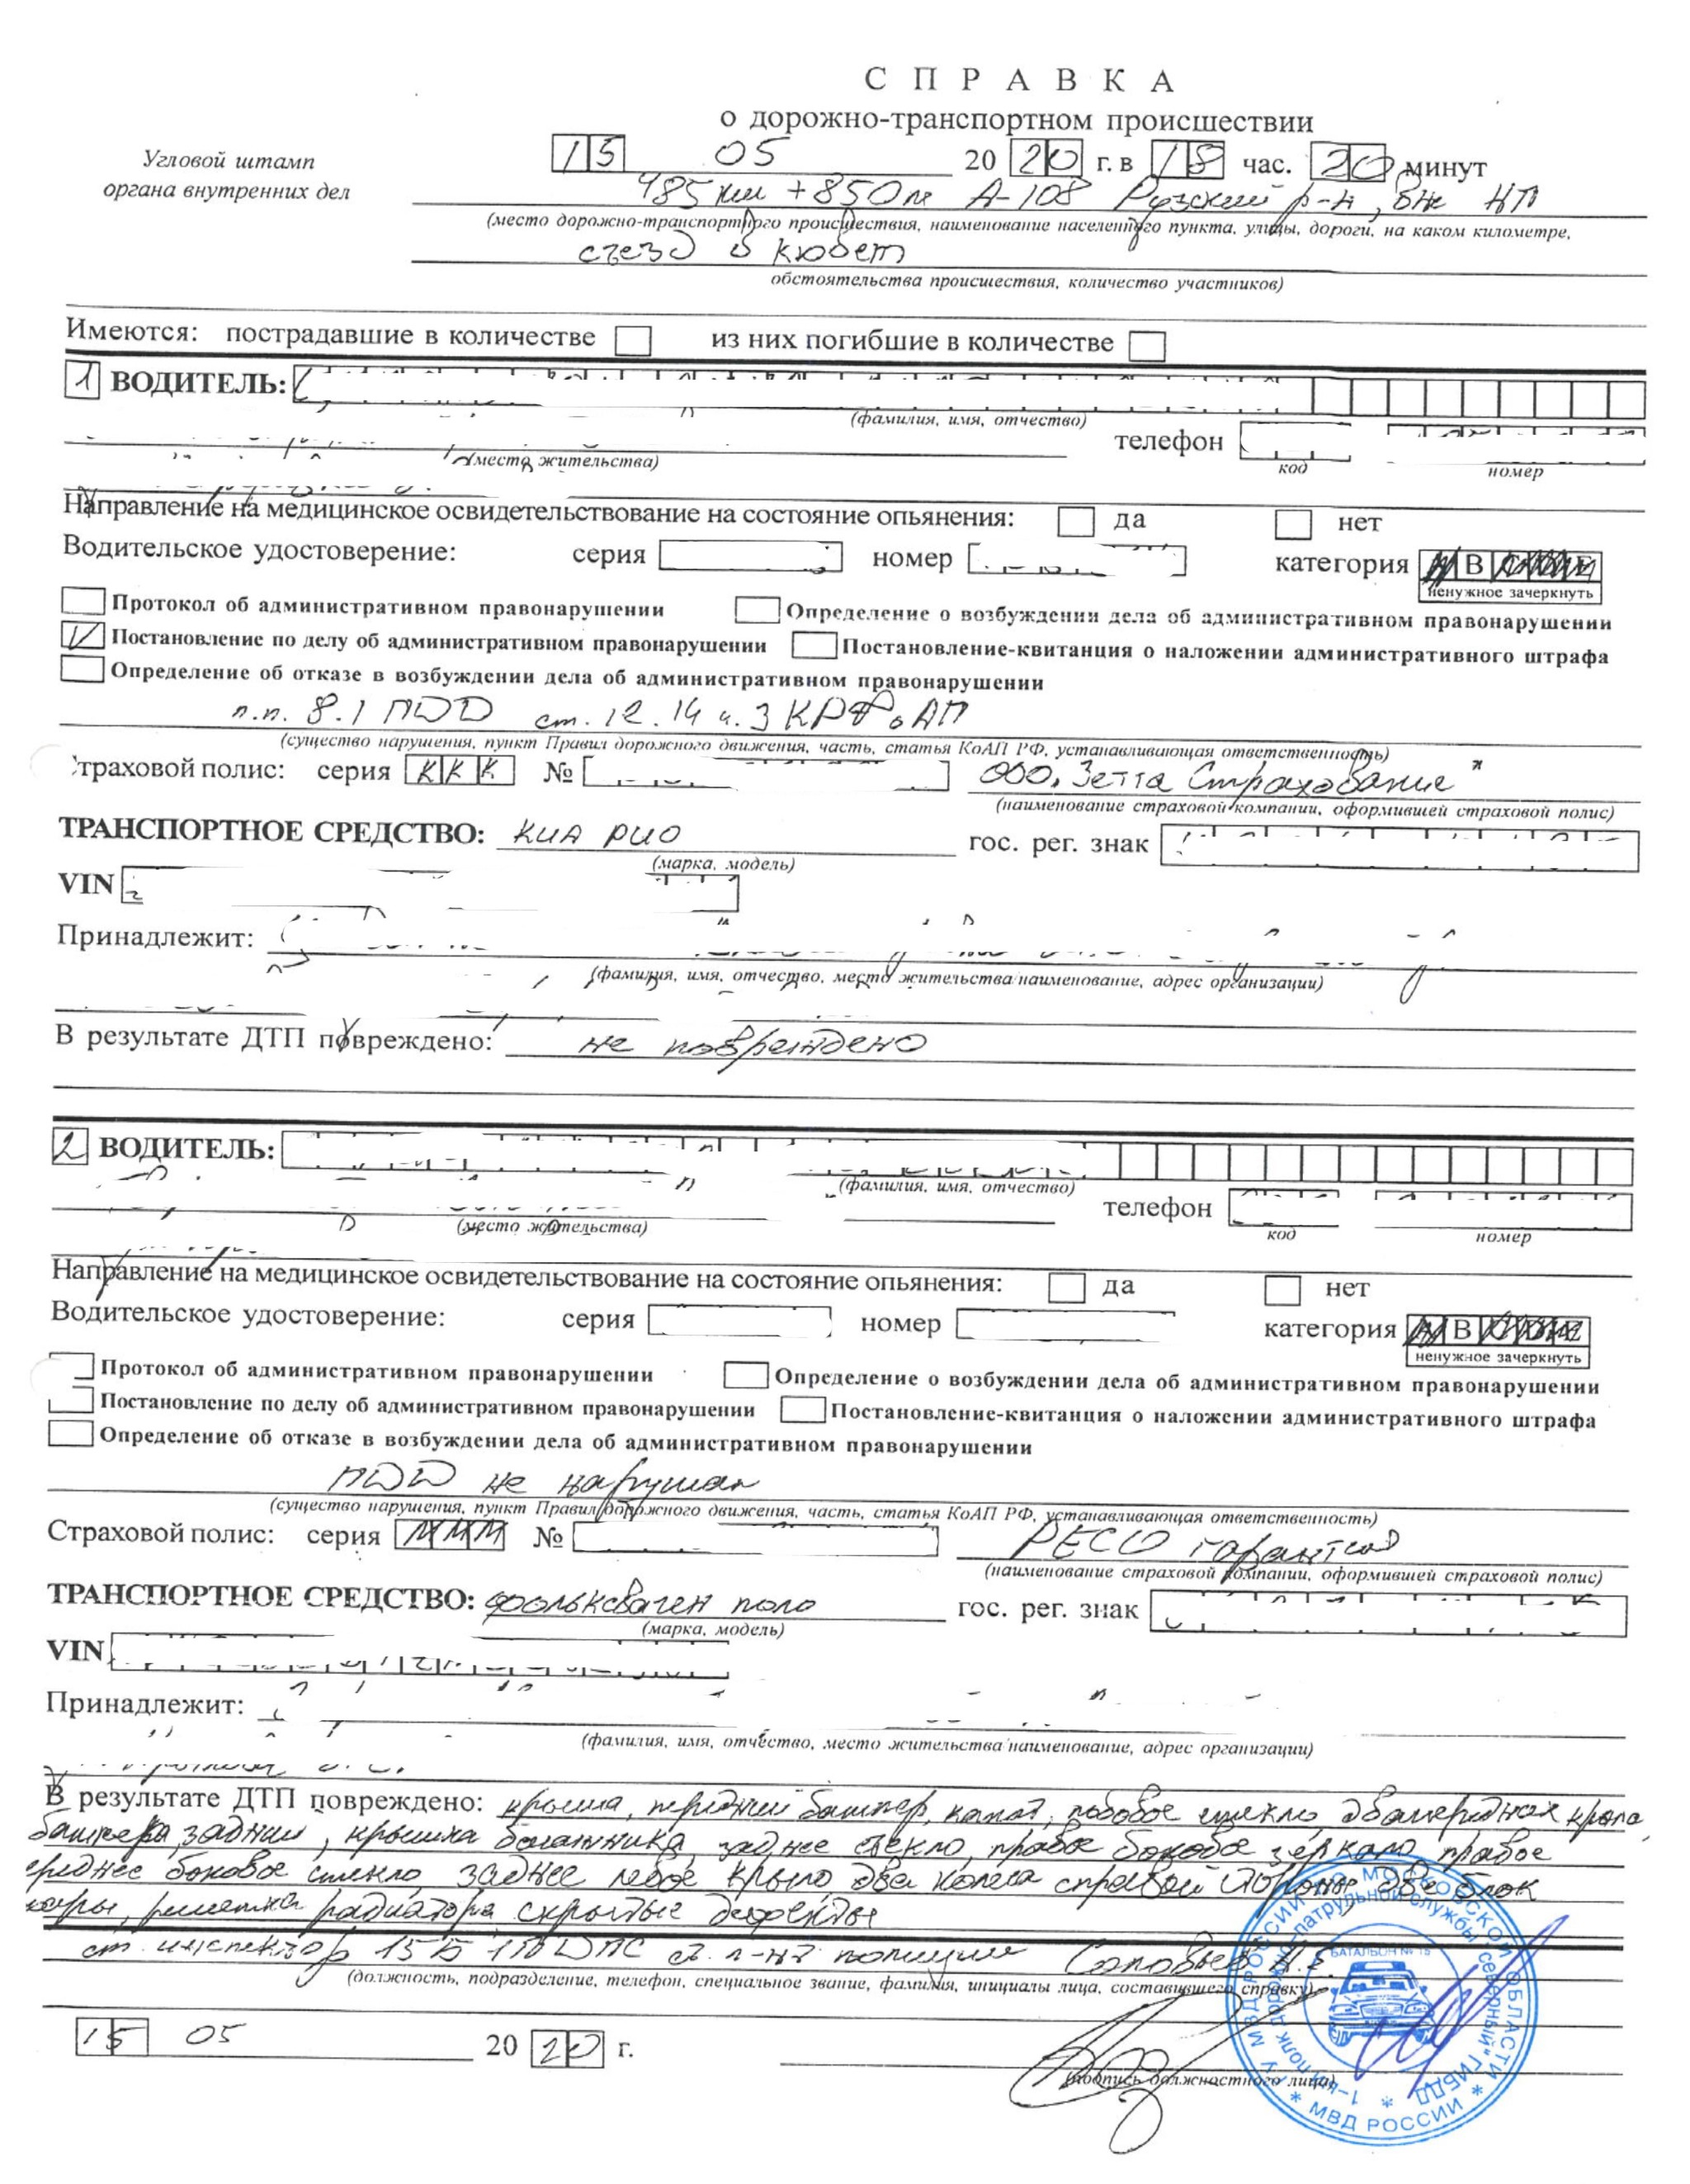 СПРАВКА
о дорожно-транспортном происшествии
Угловой штамп
органа внутренних дел
15 05 20 20 г. в 18 час. 20 минут
485 км + 850 м А-108 Рузский р-н, вне НП
(место дорожно-транспортного происшествия, наименование населенного пункта, улицы, дороги, на каком километре,
съезд в кювет
обстоятельства происшествия, количество участников)
Имеются: пострадавшие в количестве из них погибшие в количестве
1 ВОДИТЕЛЬ:
(фамилия, имя, отчество)
телефон
(место жительства) код номер
Направление на медицинское освидетельствование на состояние опьянения: да нет
Водительское удостоверение: серия номер категория A B C D E
ненужное зачеркнуть
Протокол об административном правонарушении Определение о возбуждении дела об административном правонарушении
Постановление по делу об административном правонарушении Постановление-квитанция о наложении административного штрафа
Определение об отказе в возбуждении дела об административном правонарушении
п.п. 8.1 ПДД ст. 12.14 ч. 3 КРФоАП
(существо нарушения, пункт Правил дорожного движения, часть, статья КоАП РФ, устанавливающая ответственность)
траховой полис: серия ККК № ООО "Зетта Страхование"
(наименование страховой компании, оформившей страховой полис)
ТРАНСПОРТНОЕ СРЕДСТВО: КИА РИО гос. рег. знак
(марка, модель)
VIN
Принадлежит:
(фамилия, имя, отчество, место жительства/наименование, адрес организации)
В результате ДТП повреждено: не повреждено
2 ВОДИТЕЛЬ:
(фамилия, имя, отчество)
телефон
(место жительства) код номер
Направление на медицинское освидетельствование на состояние опьянения: да нет
Водительское удостоверение: серия номер категория A B C D E
ненужное зачеркнуть
Протокол об административном правонарушении Определение о возбуждении дела об административном правонарушении
Постановление по делу об административном правонарушении Постановление-квитанция о наложении административного штрафа
Определение об отказе в возбуждении дела об административном правонарушении
ПДД не нарушал
(существо нарушения, пункт Правил дорожного движения, часть, статья КоАП РФ, устанавливающая ответственность)
Страховой полис: серия МММ № РЕСО гарантия
(наименование страховой компании, оформившей страховой полис)
ТРАНСПОРТНОЕ СРЕДСТВО: фольксваген поло гос. рег. знак
(марка, модель)
VIN
Принадлежит:
(фамилия, имя, отчество, место жительства/наименование, адрес организации)
В результате ДТП повреждено: крыша, передний бампер, капот, лобовое стекло, два передних крыла,
бампера задний, крышка багажника, заднее стекло, правое боковое зеркало, правое
переднее боковое стекло, заднее левое крыло, два колеса с правой стороны, две блок
фары, решетка радиатора, скрытые дефекты
ст. инспектор 15 Б 1 П ДПС ст. л-нт полиции Соловьев
(должность, подразделение, телефон, специальное звание, фамилия, инициалы лица, составившего справку)
15 05 20 20 г.
(подпись должностного лица)
ГУ МВД РОССИИ ПО МОСКОВСКОЙ ОБЛАСТИ
* МВД РОССИИ *
1-й полк дорожно-патрульной службы "Северный" ГИБДД
БАТАЛЬОН № 15